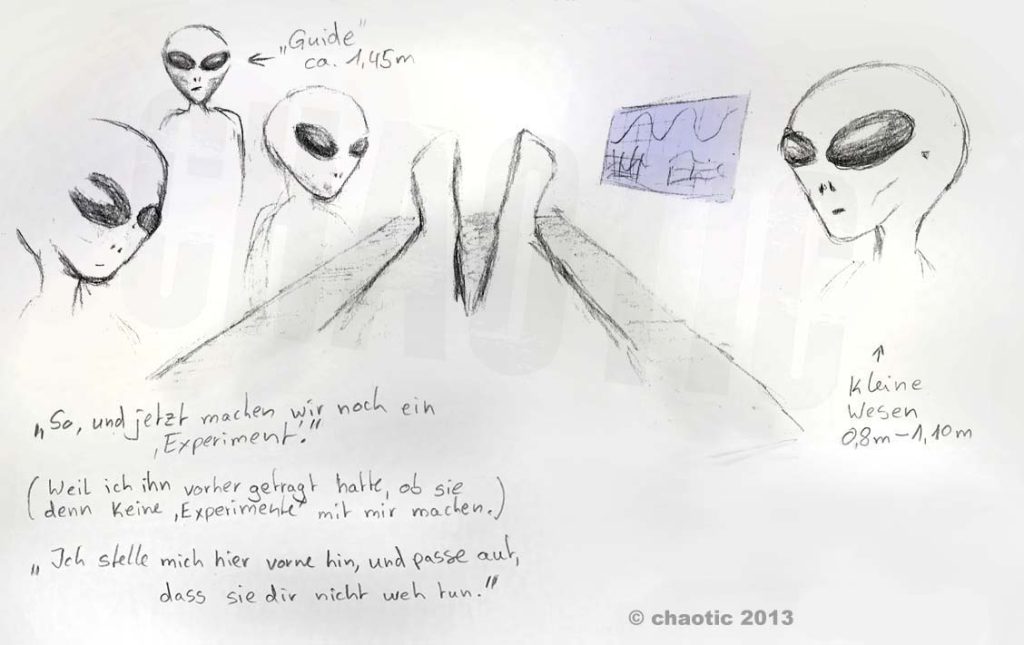 „Guide"
ca. 1,45m
Kleine
Wesen
0,8m – 1,10m
„So, und jetzt machen wir noch ein
‚Experiment'."
(Weil ich ihn vorher gefragt hatte, ob sie
denn keine ‚Experimente' mit mir machen.)
„Ich stelle mich hier vorne hin, und passe auf,
dass sie dir nicht weh tun."
© chaotic 2013
CHAOTIC